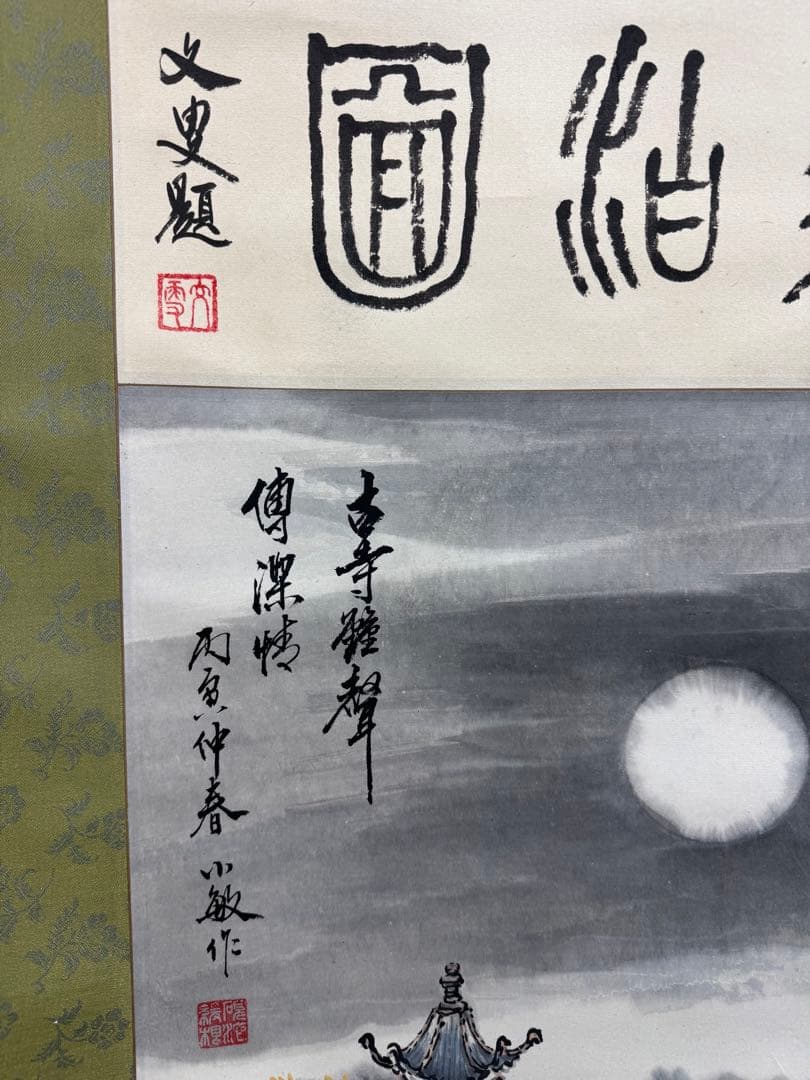 泊圖
文叟題
古寺鐘聲
傳深情
丙寅仲春 小敏作